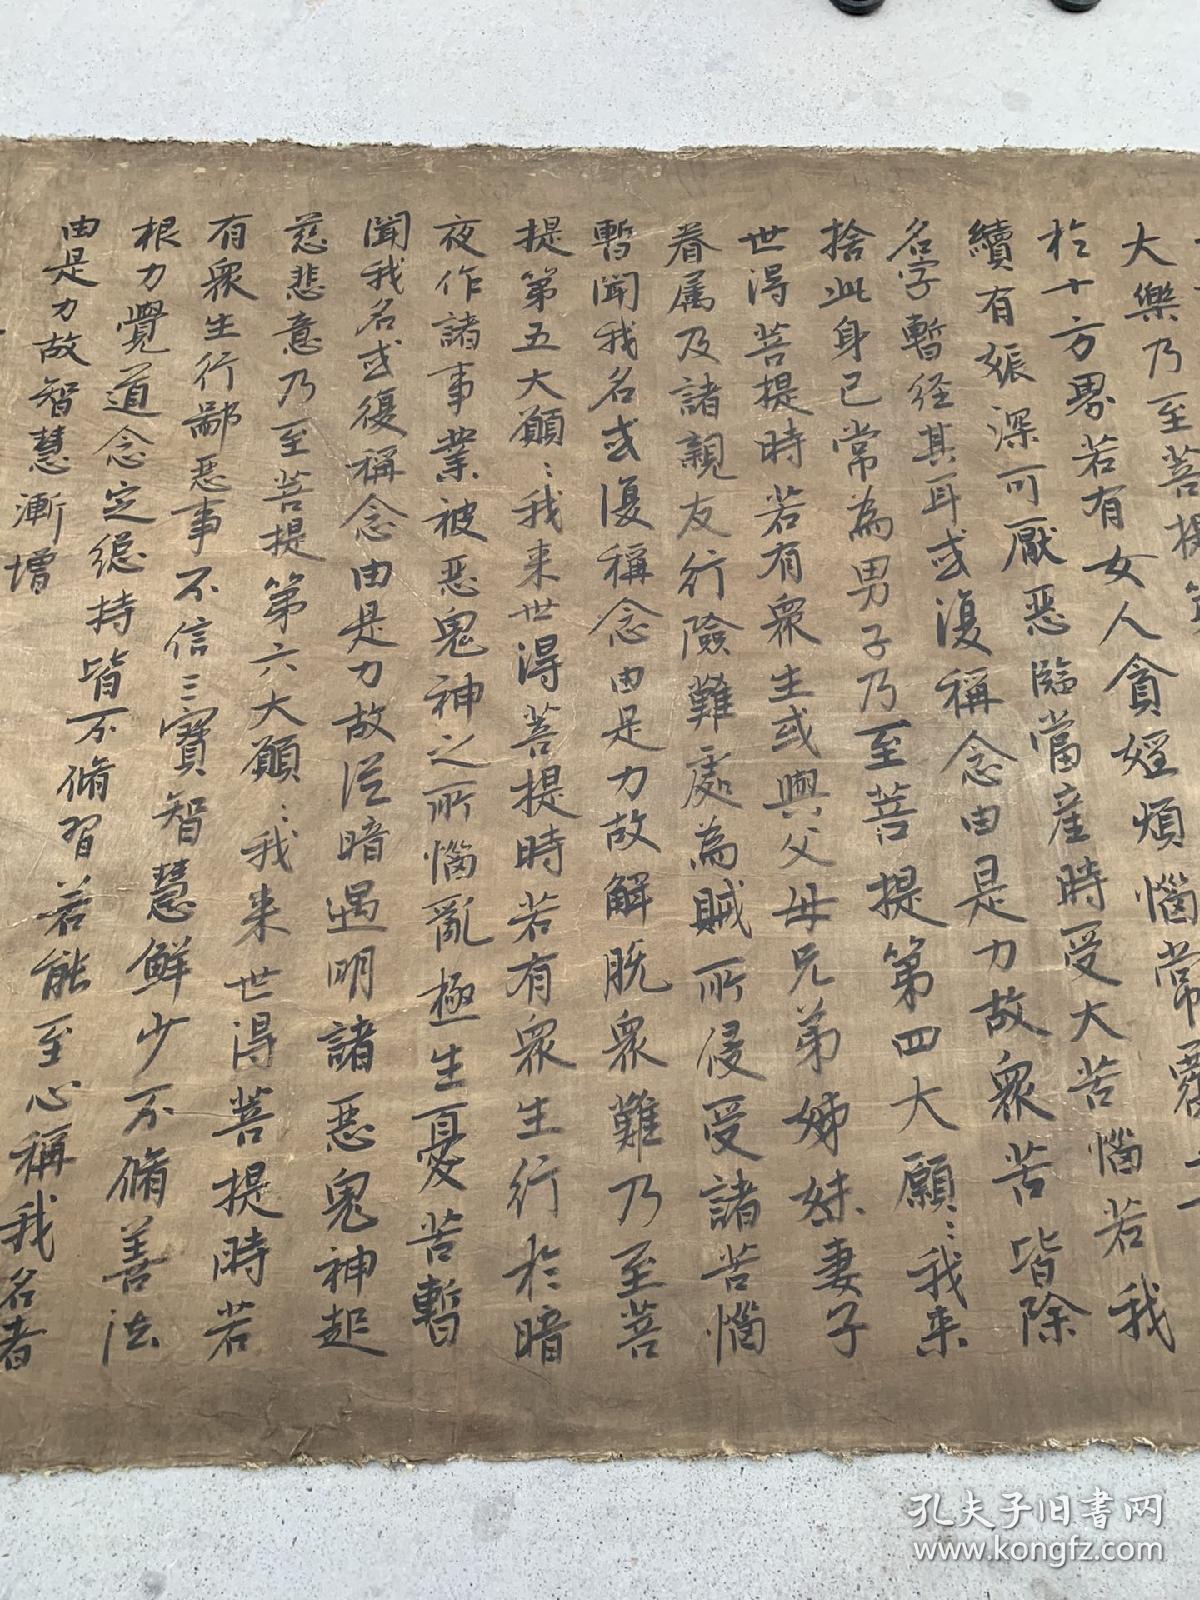 大樂乃至菩提第
於十方界若有女人貪婬煩惱常覆
續有娠深可厭惡臨當產時受大苦惱若我
名字暫經其耳或復稱念由是力故眾苦皆除
捨此身已常為男子乃至菩提第四大願：我來
世得菩提時若有眾生或與父母兄弟姊妹妻子
眷屬及諸親友行險難處為賊所侵受諸苦惱
暫聞我名或復稱念由是力故解脫眾難乃至菩
提第五大願：我來世得菩提時若有眾生行於暗
夜作諸事業被惡鬼神之所惱亂極生憂苦暫
聞我名或復稱念由是力故從暗遇明諸惡鬼神起
慈悲意乃至菩提第六大願：我來世得菩提時若
有眾生行鄙惡事不信三寶智慧鮮少不脩善法
根力覺道念定總持皆不脩習若能至心稱我名者
由是力故智慧漸增
孔夫子旧书网
www.kongfz.com